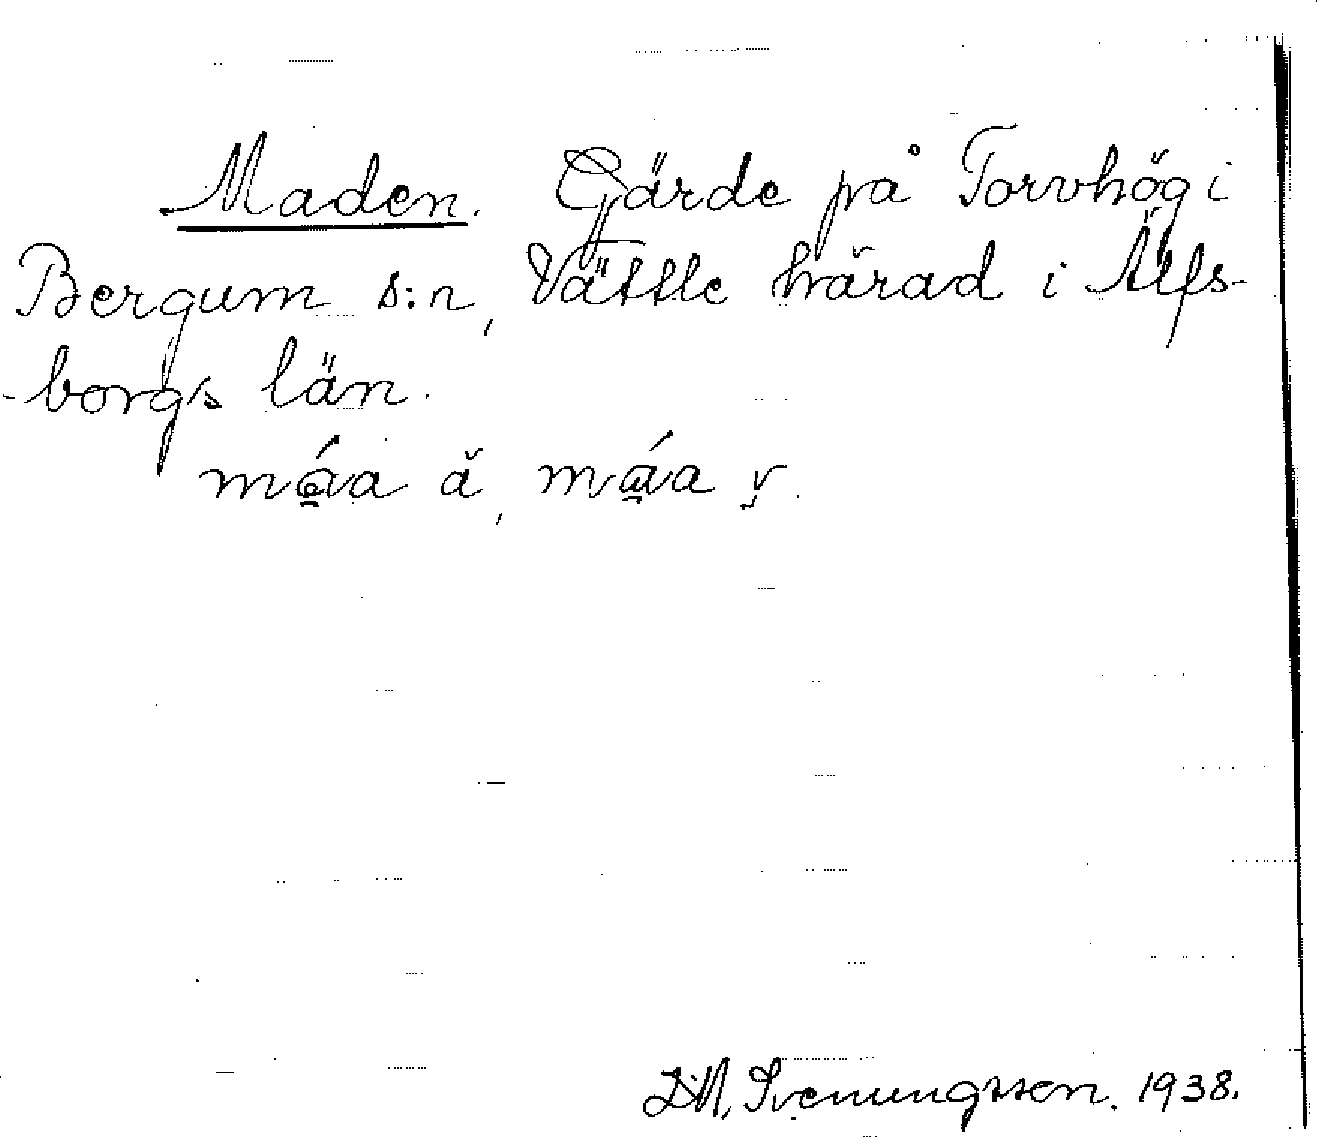 Maden. Gärde på Torvhög i
Bergum s:n, Vättle härad i Älfs-
-borgs län.
D.M. Svenungsson. 1938.